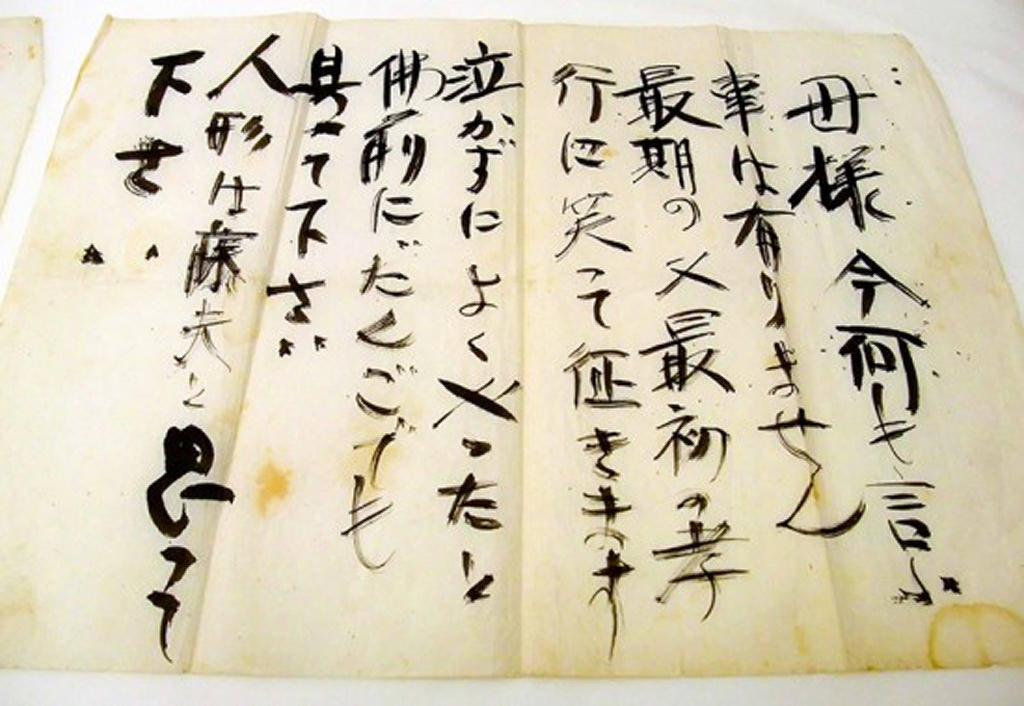 母様今何も言ふ
事は有りません
最期の又最初の孝
行に笑って征きます
泣かずによくやったと
佛前にだんごでも
具って下さい
人形は藤夫と思って
下さい